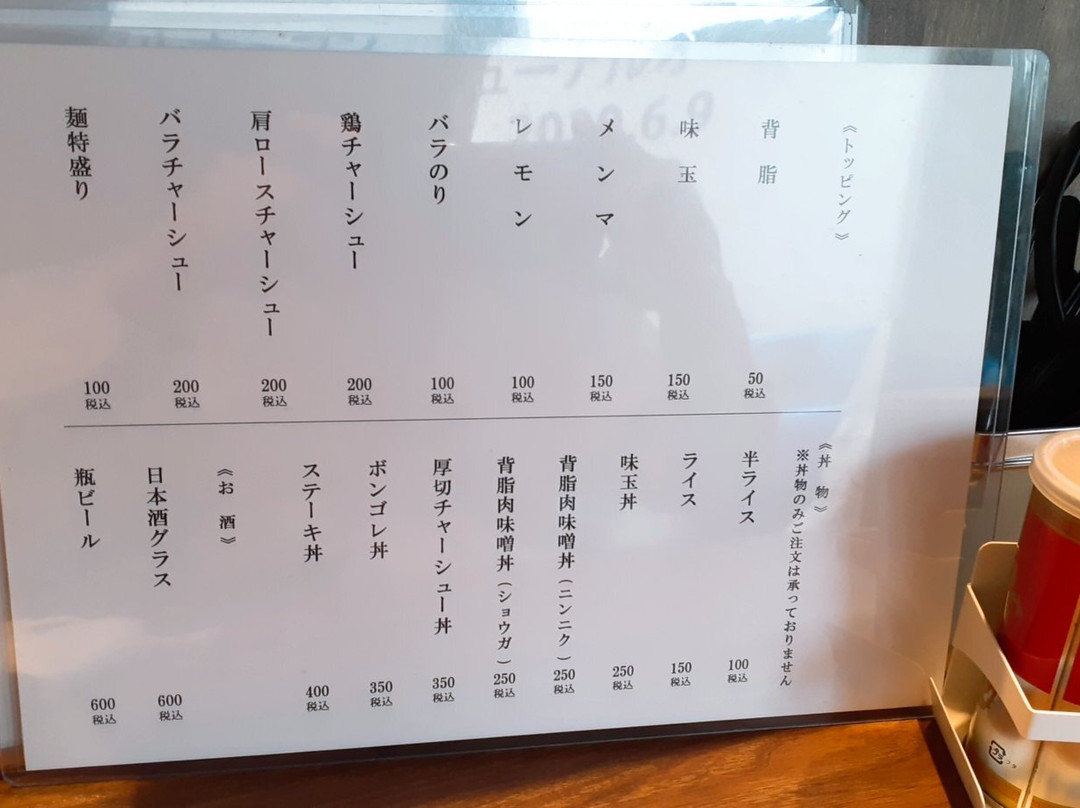 《トッピング》
背脂
50
税込
味玉
150
税込
メンマ
150
税込
レモン
100
税込
バラのり
100
税込
鶏チャーシュー
200
税込
肩ロースチャーシュー
200
税込
バラチャーシュー
200
税込
麺特盛り
100
税込
《丼物》
※丼物のみご注文は承っておりません
半ライス
100
税込
ライス
150
税込
味玉丼
250
税込
背脂肉味噌丼(ニンニク)
250
税込
背脂肉味噌丼(ショウガ)
250
税込
厚切チャーシュー丼
350
税込
ボンゴレ丼
350
税込
ステーキ丼
400
税込
《お酒》
日本酒グラス
600
税込
瓶ビール
600
税込